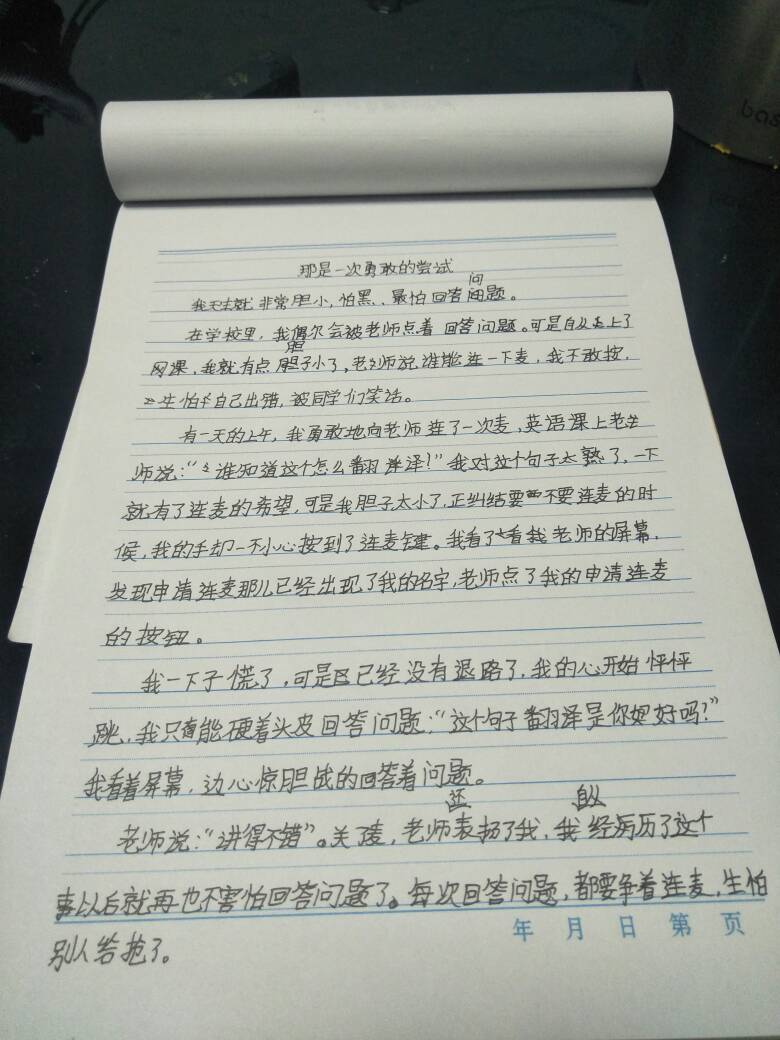 bas
那是一次勇敢的尝试
问
我天生就非常胆小,怕黑、最怕回答问题。
在学校里,我偶尔会被老师点着回答问题。可是自从上了
胆
网课,我就有点胆子小了,老师说谁能连一下麦,我不敢按,
生怕自己出错,被同学们笑话。
有一天的上午,我勇敢地向老师连了一次麦,英语课上老
师说:“谁知道这个怎么翻译?”我对这个句子太熟了,一下
就有了连麦的希望,可是我胆子太小了,正纠结要不要连麦的时
候,我的手却一不小心按到了连麦键。我看了看我老师的屏幕,
发现申请连麦那儿已经出现了我的名字,老师点了我的申请连麦
的按钮。
我一下子慌了,可是已经没有退路了,我的心开始怦怦
跳,我只能硬着头皮回答问题:“这个句子翻译是你好吗?”
我看着屏幕,边心惊胆战的回答着问题。
还 自从
老师说:“讲得不错”。关了麦,老师表扬了我,我经历了这个
事以后就再也不害怕回答问题了。每次回答问题,都要争着连麦,生怕
别人给抢了。
年 月 日 第 页